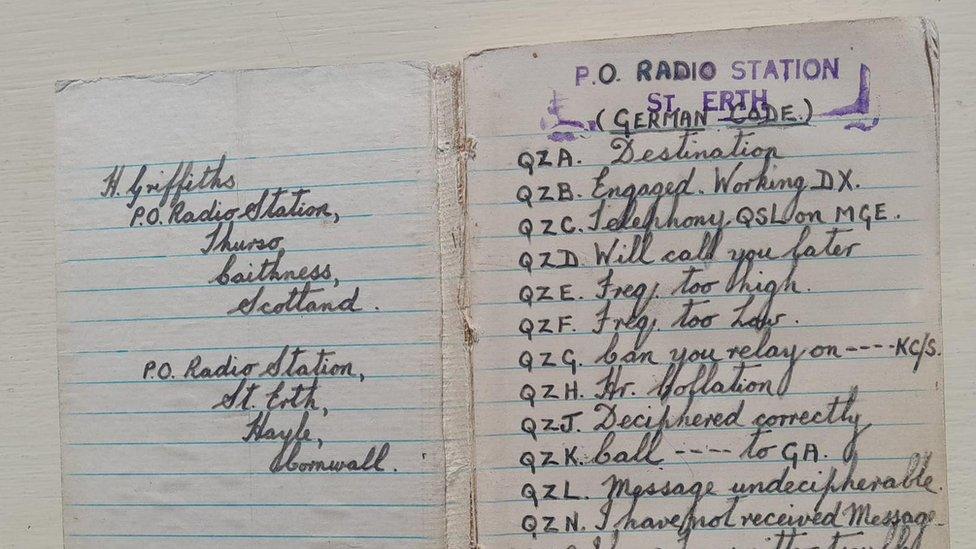 H. Griffiths
P.O. Radio Station,
Thurso,
Caithness,
Scotland.
P.O. Radio Station,
St. Erth,
Hayle,
Cornwall.
P.O. RADIO STATION
ST. ERTH
(GERMAN CODE.)
QZA. Destination
QZB. Engaged. Working DX.
QZC. Telephony QSL on MGE.
QZD. Will call you later
QZE. Freq. too high.
QZF. Freq. too Low.
QZG. Can you relay on ---- KC/S.
QZH. Hr. Collation
QZJ. Deciphered correctly
QZK. Call ---- to GA.
QZL. Message undecipherable.
QZN. I have not received Message.